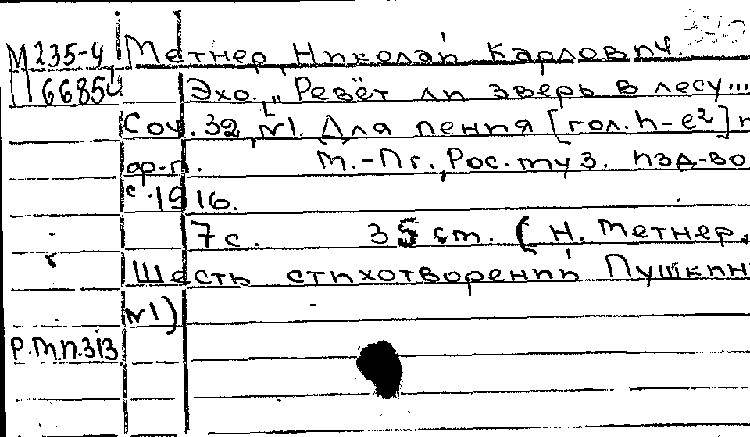 М 235-4 Метнер, Николай Карлович.
П 6685 Эхо. „Ревёт ли зверь в лесу...
Соч. 32, №1. Для пения [гол. h-e²]
ф-п. М.-Пг., Рос. муз. изд-во
с. 1916.
7 с. 35 см. (Н. Метнер.
Шесть стихотворений Пушкин
№1)
Р.М.И.313